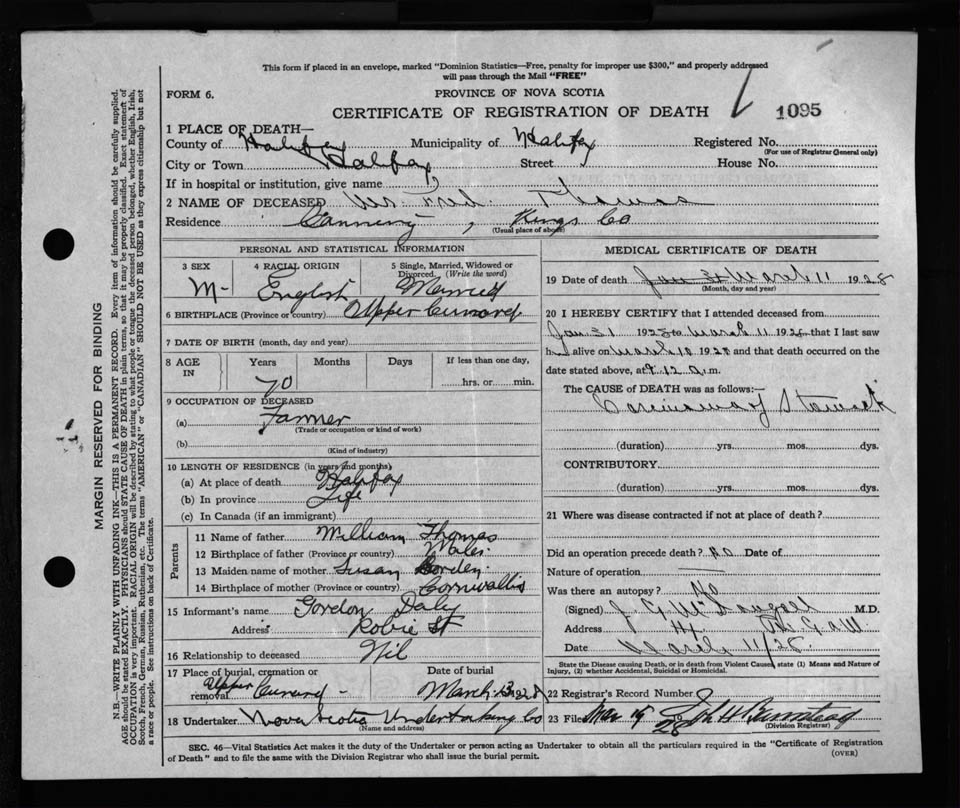 This form if placed in an envelope, marked "Dominion Statistics—Free, penalty for improper use $300," and properly addressed
will pass through the Mail "FREE"
FORM 6.
PROVINCE OF NOVA SCOTIA
CERTIFICATE OF REGISTRATION OF DEATH
1095
1 PLACE OF DEATH—
County of Halifax Municipality of Halifax Registered No.
(For use of Registrar General only)
City or Town Halifax Street House No.
If in hospital or institution, give name
2 NAME OF DECEASED Fred. Thomas
Residence Canning, Kings Co
(Usual place of abode)
PERSONAL AND STATISTICAL INFORMATION
3 SEX 4 RACIAL ORIGIN 5 Single, Married, Widowed or
Divorced. (Write the word)
M- English Married
6 BIRTHPLACE (Province or country) Upper
7 DATE OF BIRTH (month, day and year)
8 AGE IN Years Months Days If less than one day,
hrs. or min.
70
9 OCCUPATION OF DECEASED
(a) Farmer
(Trade or occupation or kind of work)
(b)
(Kind of industry)
10 LENGTH OF RESIDENCE (in years and months)
(a) At place of death Halifax
(b) In province Life
(c) In Canada (if an immigrant)
Parents
11 Name of father William Thomas
12 Birthplace of father (Province or country) Wales.
13 Maiden name of mother Susan Borden.
14 Birthplace of mother (Province or country) Cornwallis
15 Informant's name Gordon Daly
Address Robie St
16 Relationship to deceased Nil
17 Place of burial, cremation or
removal Upper
Date of burial
March 13 1928
18 Undertaker Nova Scotia Undertaking Co
(Name and address)
MEDICAL CERTIFICATE OF DEATH
19 Date of death March 11 1928
(Month, day and year)
20 I HEREBY CERTIFY that I attended deceased from
Jan 31 1928 to March 11 1928 that I last saw
h alive on March 10 1928 and that death occurred on
date stated above, at 12 a.m.
The CAUSE of DEATH was as follows:—
Carcinoma of Stomach
(duration) yrs. mos. dys.
CONTRIBUTORY
(duration) yrs. mos. dys.
21 Where was disease contracted if not at place of death?
Did an operation precede death? No Date of
Nature of operation —
Was there an autopsy? No
(Signed) M.D.
Address
Date March 11/28
State the Disease causing Death, or in death from Violent Causes, state (1) Means and Nature of
Injury, and (2) whether Accidental, Suicidal or Homicidal.
22 Registrar's Record Number
23 Filed Mar 19 1928
(Division Registrar)
SEC. 46—Vital Statistics Act makes it the duty of the Undertaker or person acting as Undertaker to obtain all the particulars required in the "Certificate of Registration
of Death" and to file the same with the Division Registrar who shall issue the burial permit.
(OVER)
MARGIN RESERVED FOR BINDING
N.B.—WRITE PLAINLY WITH UNFADING INK—THIS IS A PERMANENT RECORD. Every item of information should be carefully supplied.
AGE should be stated EXACTLY. PHYSICIANS should STATE CAUSE OF DEATH in plain terms, so that it may be properly classified. Exact statement of
OCCUPATION is very important. RACIAL ORIGIN will be described by stating to what people or tongue the deceased person belonged, whether English, Irish,
Scotch, French, German, Russian, Ruthenian, etc. The terms "AMERICAN" or "CANADIAN" SHOULD NOT BE USED as they express citizenship but not
a race or people. See instructions on back of Certificate.